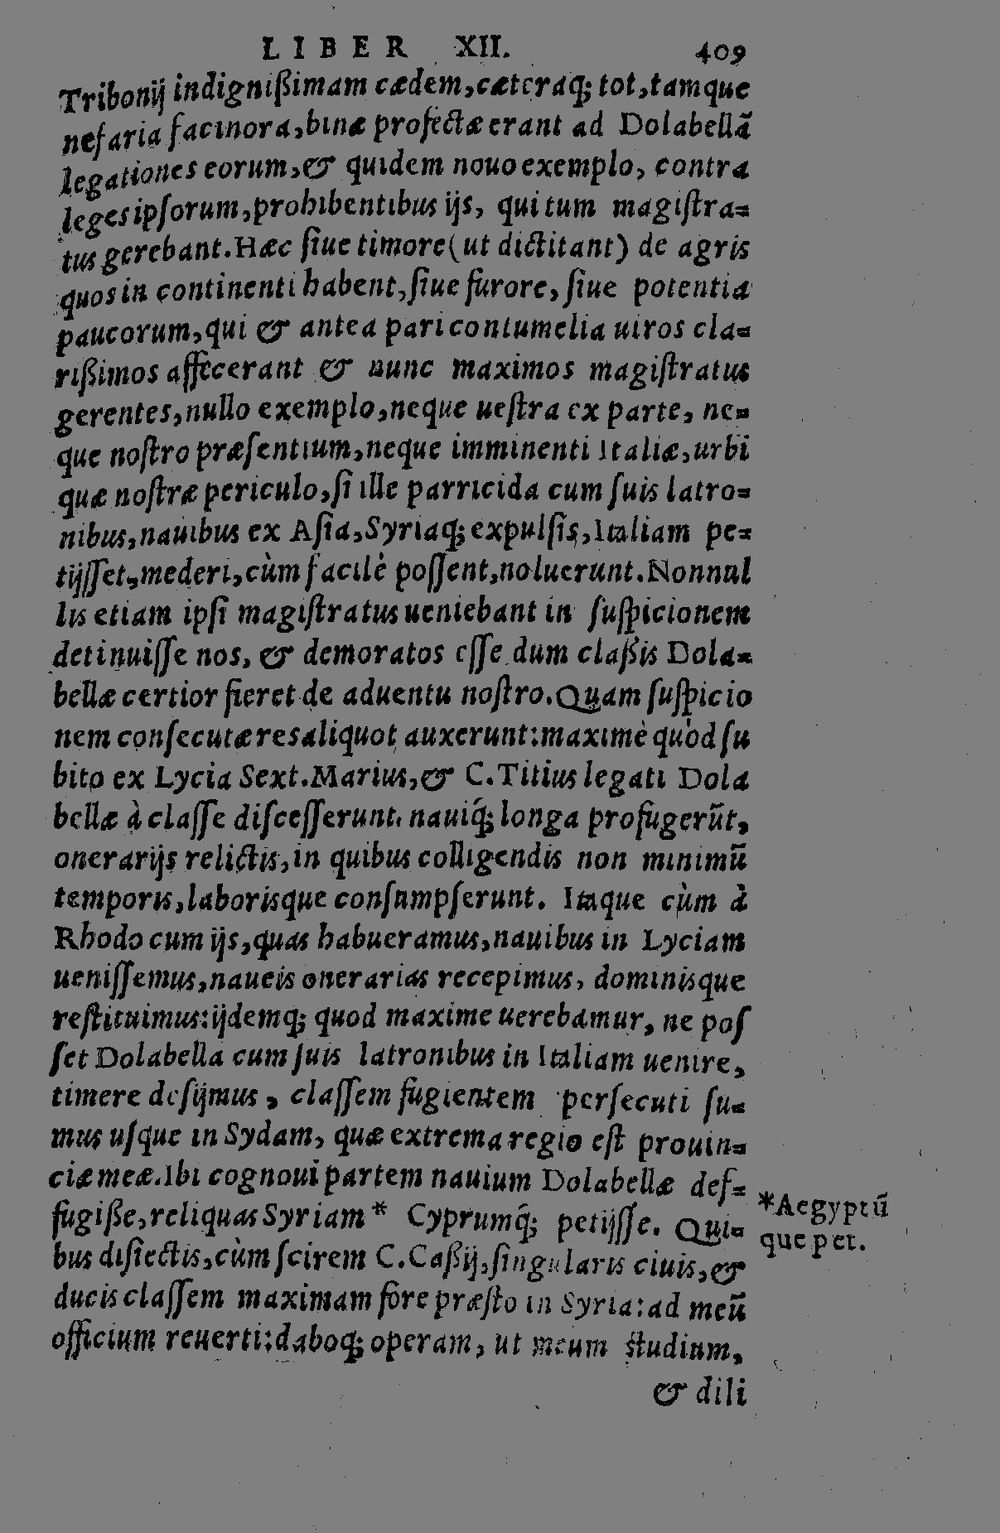 LIBER XII. 409
Tribonij indignißimam cædem, cæteraq; tot, tamque
nefaria facinora, binæ profectæ erant ad Dolabellã
legationes eorum, & quidem nouo exemplo, contra
leges ipſorum, prohibentibus ijs, qui tum magiſtra=
tus gerebant. Hæc ſiue timore (ut dictitant) de agris
quos in continenti habent, ſiue furore, ſiue potentia
paucorum, qui & antea pari contumelia uiros cla=
rißimos affecerant & nunc maximos magiſtratus
gerentes, nullo exemplo, neque ueſtra ex parte, ne=
que noſtro præſentium, neque imminenti Italiæ, urbi
quæ noſtræ periculo, ſi ille parricida cum ſuis latro=
nibus, nauibus ex Aſia, Syriaq; expulſis, Italiam pe=
tijſſet, mederi, cùm facilè poſſent, noluerunt. Nonnul
lis etiam ipſi magiſtratus ueniebant in ſuſpicionem
detinuiſſe nos, & demoratos eſſe dum claßis Dola=
bellæ certior fieret de aduentu noſtro. Quam ſuſpicio
nem conſecutæ res aliquot auxerunt: maximè quòd ſu
bito ex Lycia Sext. Marius, & C. Titius legati Dola
bellæ à claſſe diſceſſerunt. nauiq́; longa profugerũt,
onerarijs relictis, in quibus colligendis non minimũ
temporis, laborisque conſumpſerunt. Itaque cùm à
Rhodo cum ijs, quas habueramus, nauibus in Lyciam
ueniſſemus, naueis onerarias recepimus, dominisque
reſtituimus: ijdemq; quod maxime uerebamur, ne poſ
ſet Dolabella cum ſuis latronibus in Italiam uenire,
timere deſijmus, claſſem fugientem perſecuti ſu=
mus uſque in Sydam, quæ extrema regio eſt prouin=
ciæ meæ. Ibi cognoui partem nauium Dolabellæ def=
fugiße, reliquas Syriam* Cyprumq́; petijſſe. Qui=
bus diſiectis, cùm ſcirem C. Caßij, ſingularis ciuis, &
ducis claſſem maximam fore præſto in Syria: ad meũ
officium reuerti: daboq; operam, ut meum ſtudium,
& dili
*Aegyptũ
que pet.